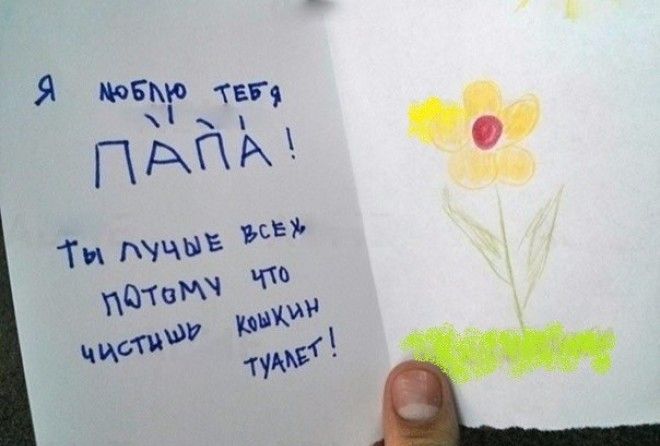 Я люблю тебя
ПАПА!
Ты лучше всех
потому что
чистишь кошкин
туалет!